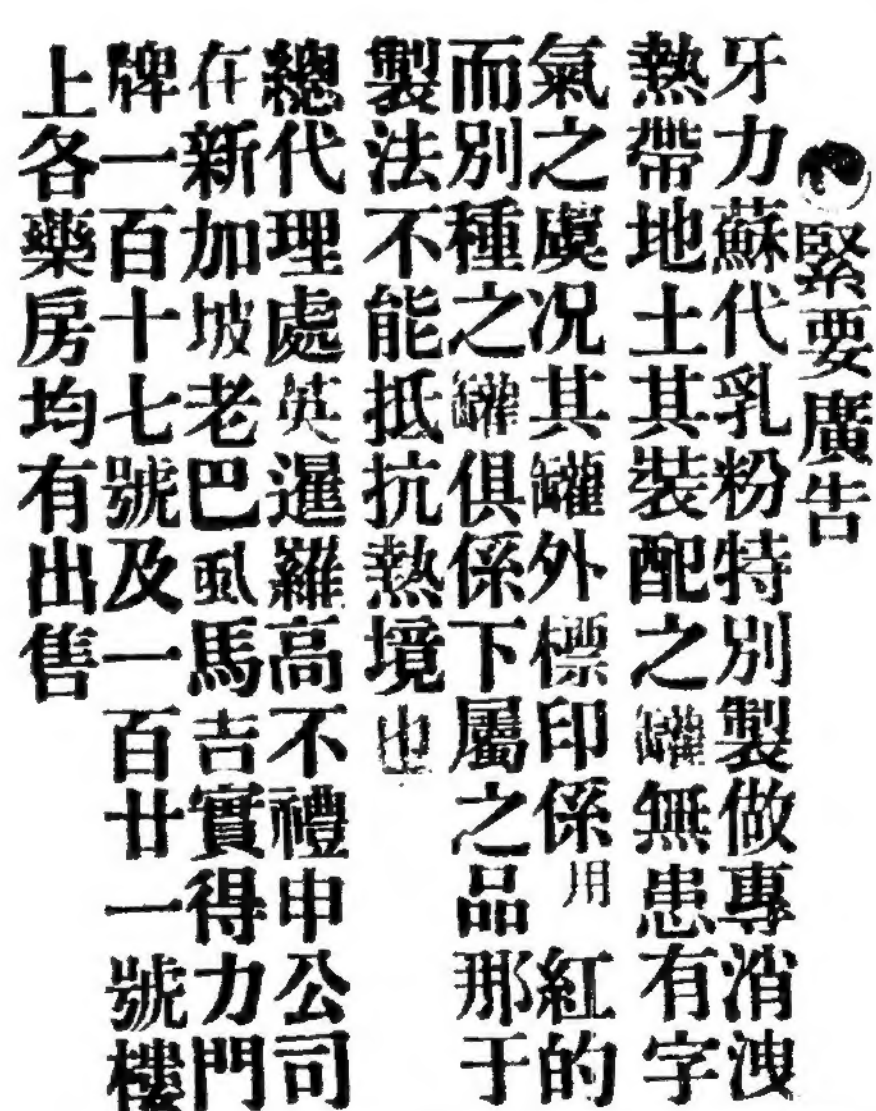 緊要廣告
牙力蘇代乳粉特別製做專消洩
熱帶地土其裝配之罐無患有字
氣之虞况其罐外標印係用紅的
而別種之罐俱係下屬之品那于
製法不能抵抗熱境也
總代理處英暹羅高不禮申公司
在新加坡老巴虱馬吉實得力門
牌一百十七號及一百廿一號樓
上各藥房均有出售